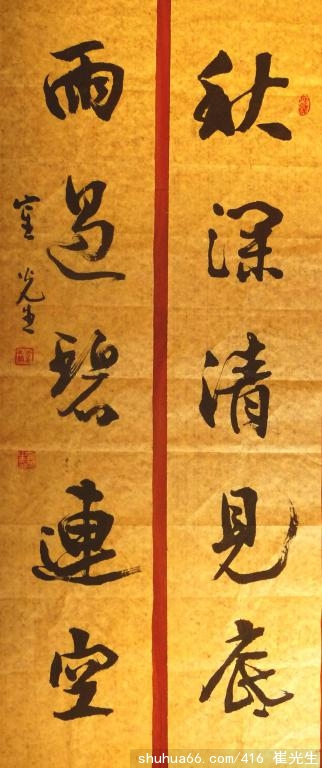 秋深清見底
雨過碧連空
崔光生
shuhua66.com/416 崔光生